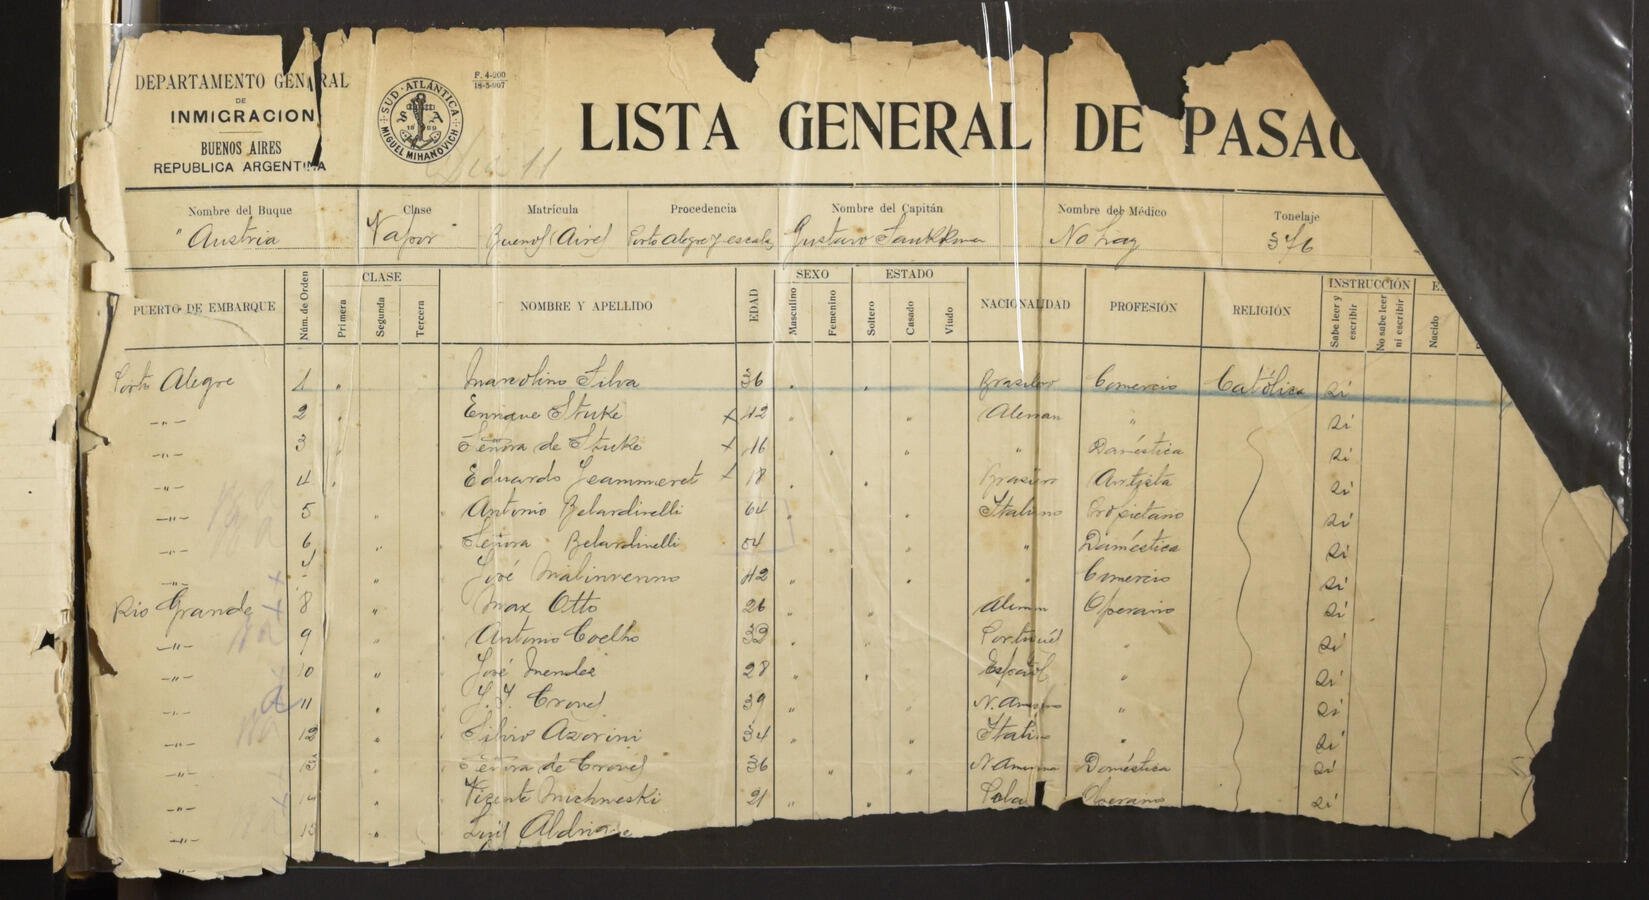 DEPARTAMENTO GENERAL
DE
INMIGRACION
BUENOS AIRES
REPUBLICA ARGENTINA
SUD-ATLÁNTICA
S A
1889
MIGUEL MIHANOVICH
F. 4-200
18-5-907
LISTA GENERAL DE PASAG
Nombre del Buque Clase Matrícula Procedencia Nombre del Capitán Nombre del Médico Tonelaje
"Austria Vapor Buenos Aires Porto Alegre y escalas Gustavo No hay 376
PUERTO DE EMBARQUE Núm. de Orden CLASE Primera Segunda Tercera NOMBRE Y APELLIDO EDAD SEXO Masculino Femenino ESTADO Soltero Casado Viudo NACIONALIDAD PROFESIÓN RELIGIÓN INSTRUCCIÓN Sabe leer y escribir No sabe leer ni escribir Nacido
Porto Alegre 1 " Marcolino Silva 36 " " Brasilero Comercio Católica si
—"— 2 " Enrique Stuke x 42 " " Aleman " si
—"— 3 " Señora de Stuke x 16 " " " Doméstica si
—"— 4 " Eduardo Jeammeret x 18 " " Brasilero Artista si
—"— 5 " Antonio Belardinelli 64 " " Italiano Propietario si
—"— 6 " Señora Belardinelli 54 " " " Doméstica si
—"— 7 " José Malinverno 42 " " " Comercio si
Rio Grande 8 " Max Otto 26 " " Aleman Operario si
—"— 9 " Antonio Coelho 32 " " Portugués " si
—"— 10 " José Mendes 28 " " Español " si
—"— 11 " 39 " " N. Americano " si
—"— 12 " Silvio Azorini 34 " " Italiano " si
—"— 13 " Señora de 36 " " N. Americana Doméstica si
—"— 14 " Vicente 21 " " Operario si
—"— 15 " Luis